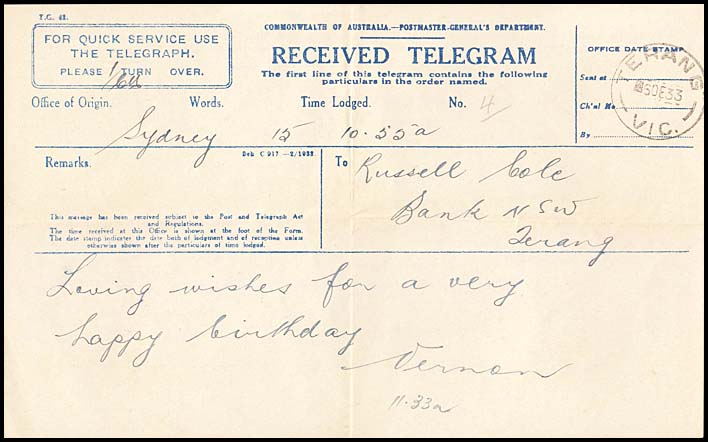 T.G. 42.
COMMONWEALTH OF AUSTRALIA.—POSTMASTER-GENERAL'S DEPARTMENT.
FOR QUICK SERVICE USE
THE TELEGRAPH.
PLEASE TURN OVER.
RECEIVED TELEGRAM
The first line of this telegram contains the following
particulars in the order named.
OFFICE DATE STAMP
Sent at
Ch'd
By
TERANG
VIC.
Office of Origin. Words. Time Lodged. No. 4
Sydney 15 10.55a
Remarks.
Sch C 917 —2/1933.
To Russell Cole
Bank NSW
Terang
This message has been received subject to the Post and Telegraph Act
and Regulations.
The time received at this Office is shown at the foot of the Form.
The date stamp indicates the date both of lodgment and of reception unless
otherwise shown after the particulars of time lodged.
Loving wishes for a very
happy birthday
Vernon
11.33a